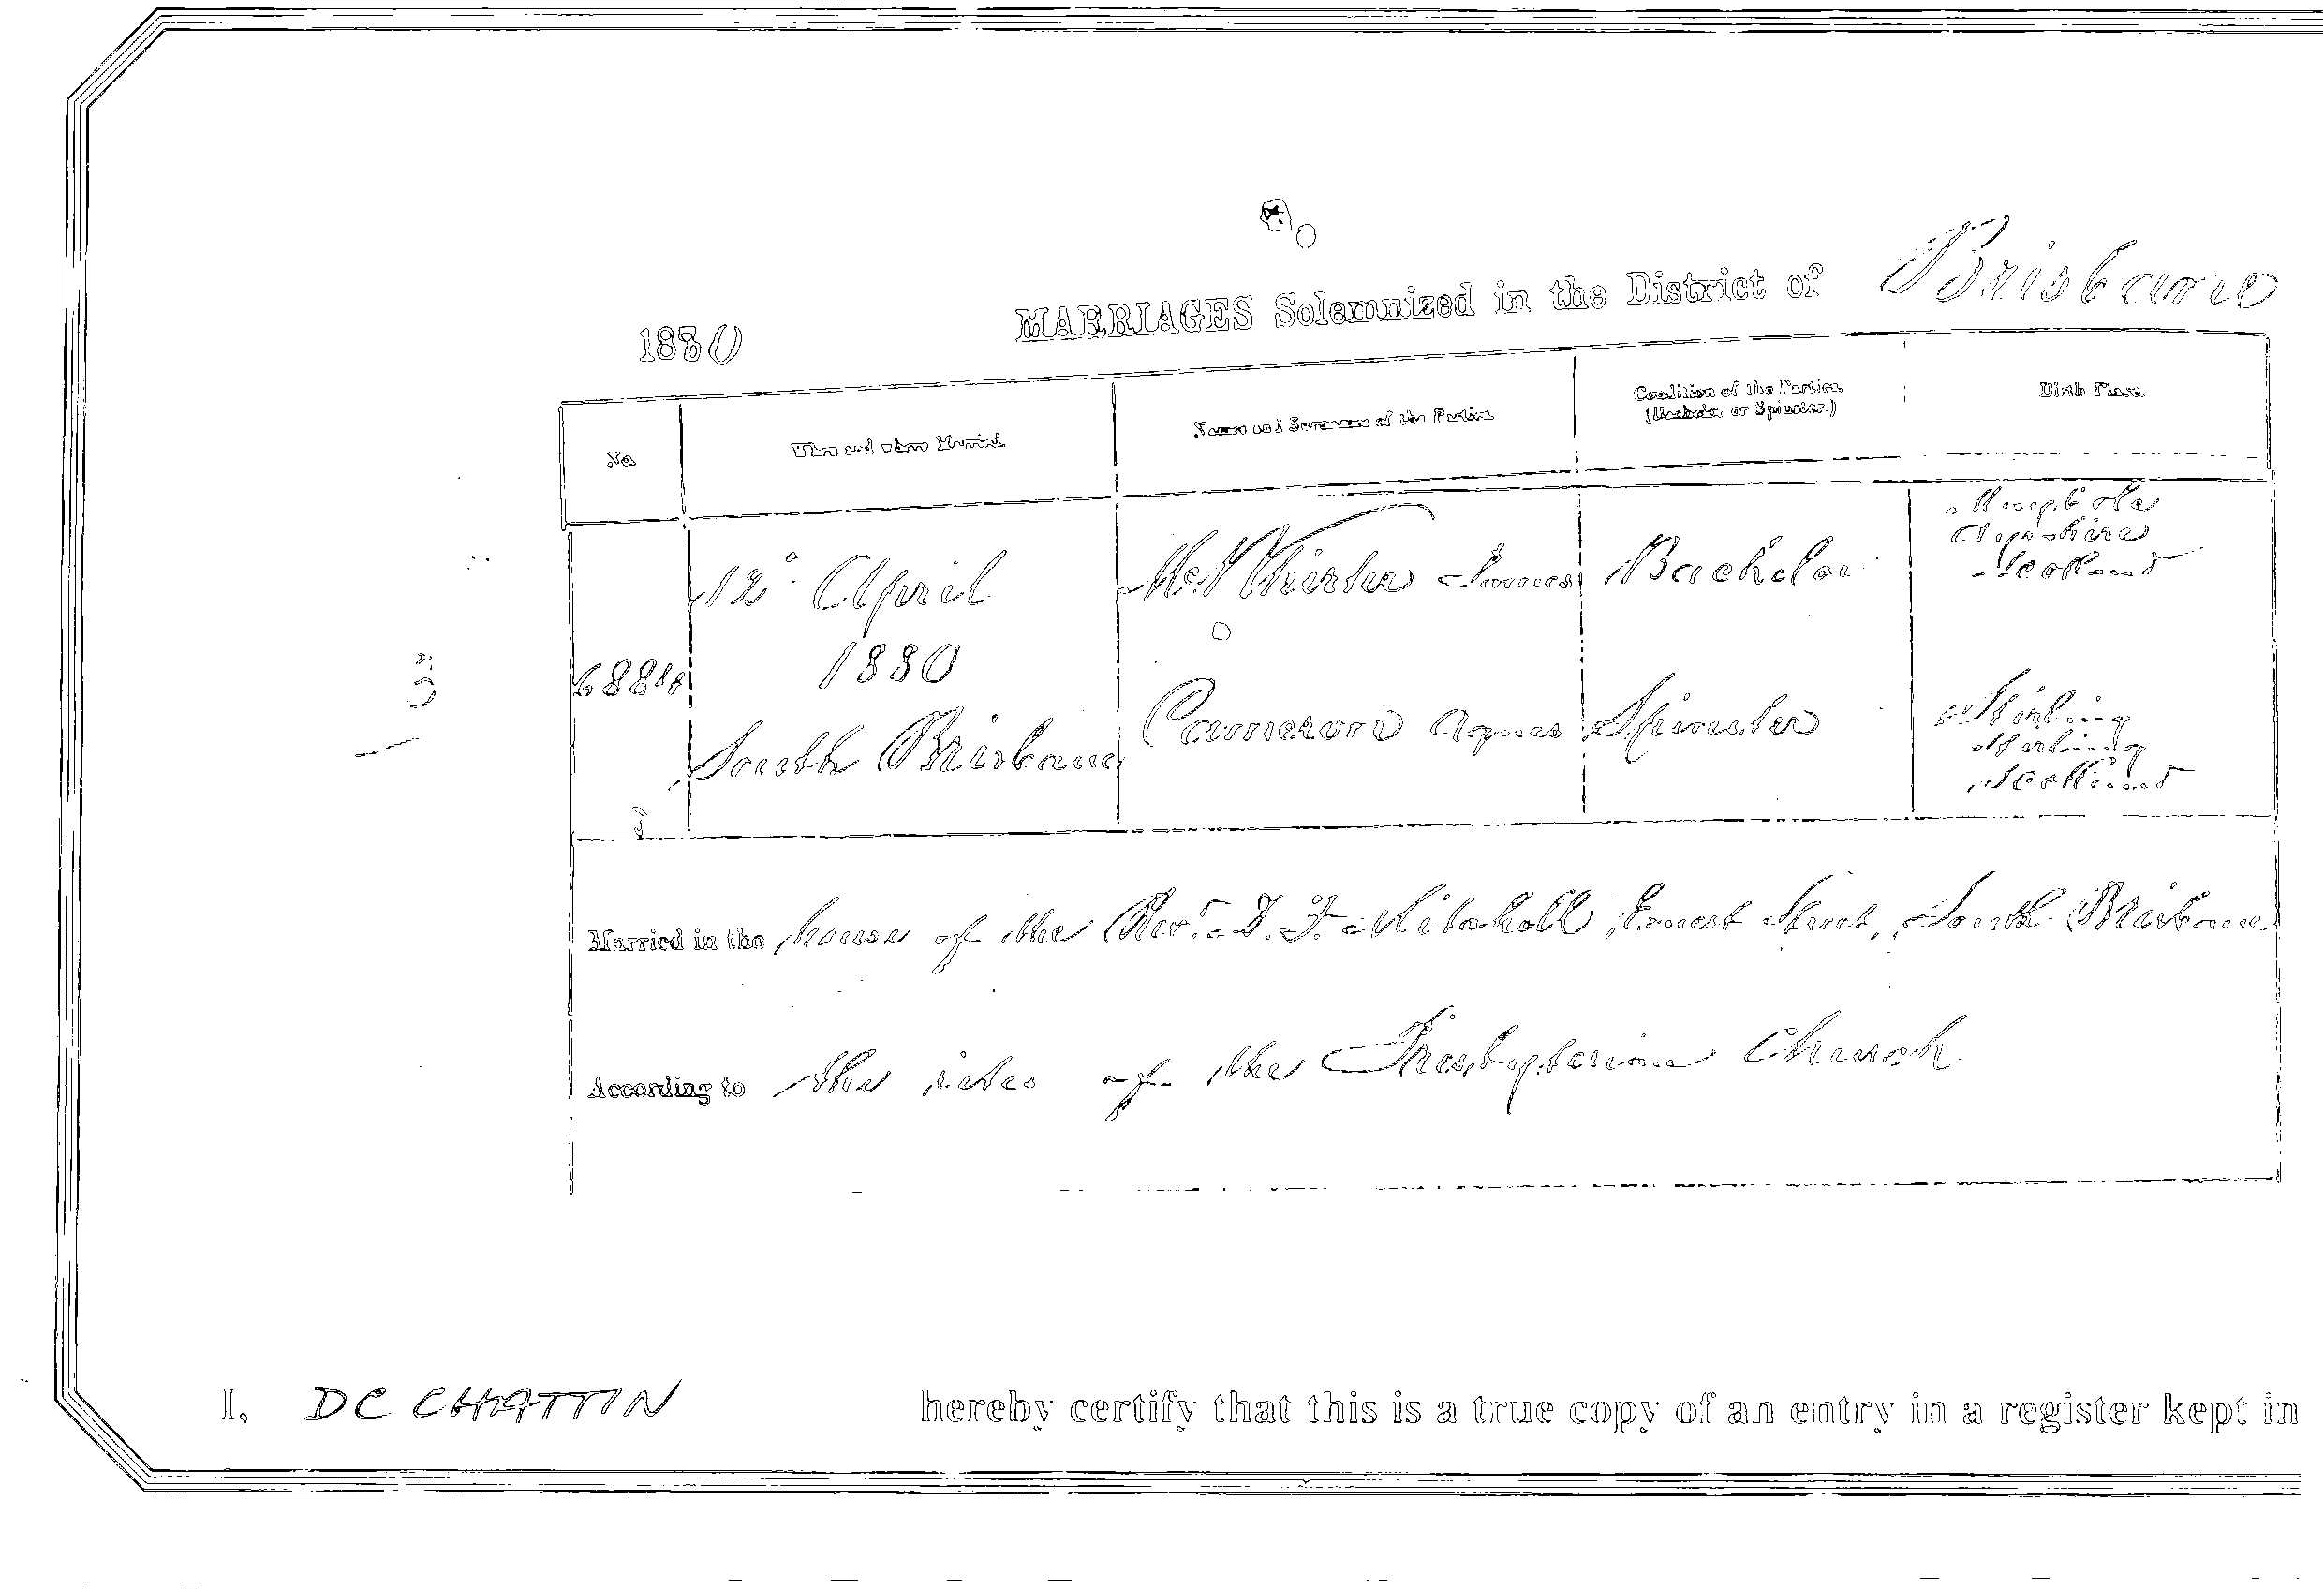 1880 MARRIAGES Solemnized in the District of Brisbane
No. When and where Married Names and Surnames of the Parties Condition of the Parties. (Bachelor or Spinster.) Birth Place.
12° April McWhirter James Bachelor Maybole
Ayrshire
Scotland
1880
South Brisbane Cameron Agnes Spinster Stirling
Stirling
Scotland
Married in the house of the Revd. D. F. Mitchell, Ernest Street, South Brisbane
According to the rites of the Presbyterian Church
I, DC CHATTIN hereby certify that this is a true copy of an entry in a register kept in